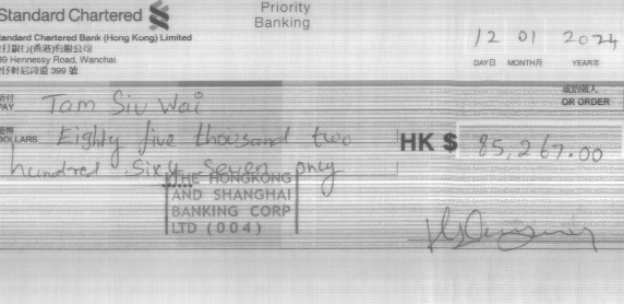 Standard Chartered
Priority
Banking
Standard Chartered Bank (Hong Kong) Limited
渣打銀行(香港)有限公司
Hennessy Road, Wanchai
軒尼詩道 399 號
12 01 2024
DAY日 MONTH月 YEAR年
PAY Tam Siu Wai
或持票人
OR ORDER
DOLLARS Eighty five thousand two
hundred Sixty Seven only
HK $ 85,267.00
THE HONGKONG
AND SHANGHAI
BANKING CORP
LTD (004)